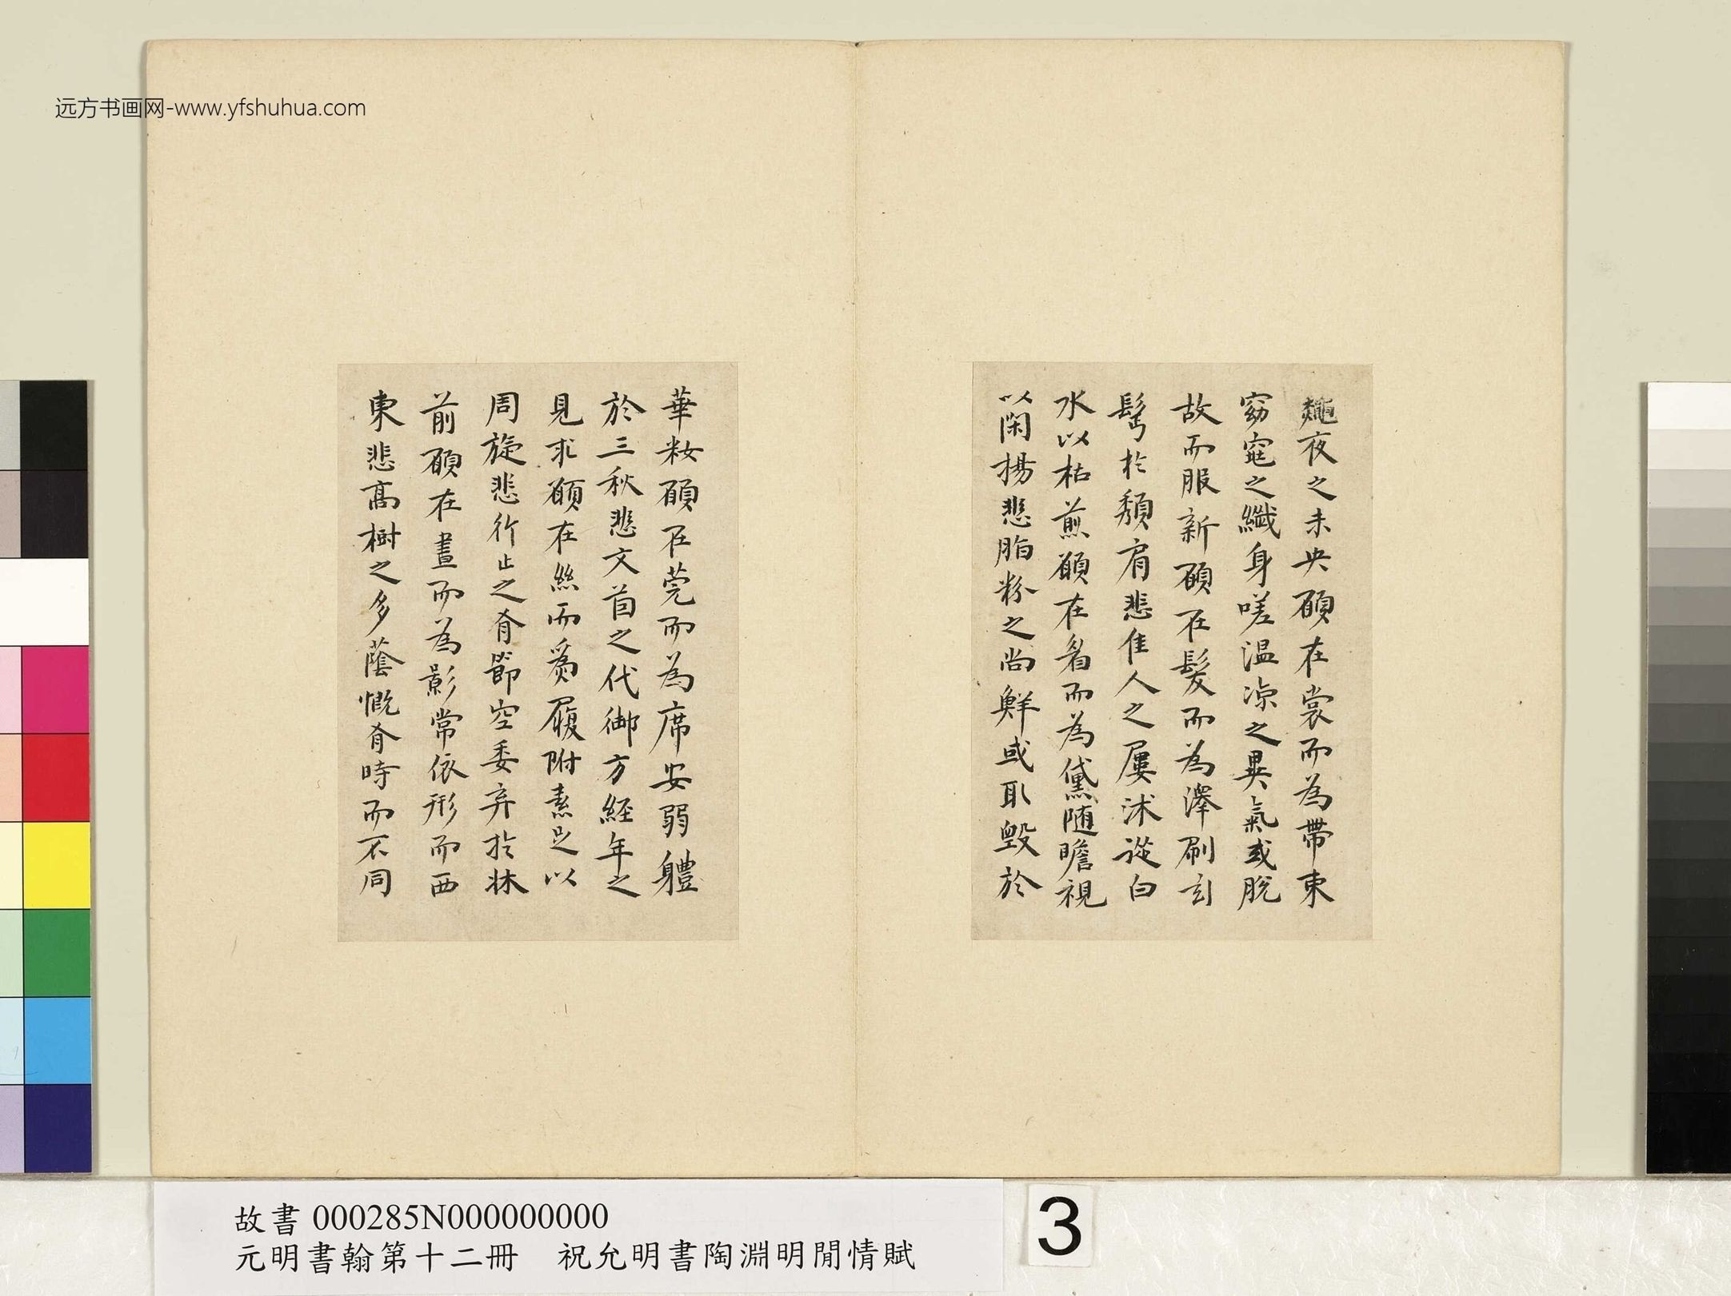 远方书画网-www.yfshuhua.com
夜之未央願在裳而為帶束
窈窕之纖身嗟温凉之異氣或脫
故而服新願在髮而為澤刷玄
鬢於頹肩悲佳人之屢沐從白
水以枯煎願在眉而為黛随瞻視
以閑揚悲脂粉之尚鮮或取毀於
華粧願在莞而為席安弱體
於三秋悲文茵之代御方經年之
見求願在絲而為履附素足以
周旋悲行止之有節空委弃於牀
前願在晝而為影常依形而西
東悲高樹之多蔭慨有時而不同
故書 000285N000000000
元明書翰第十二冊 祝允明書陶淵明閒情賦
3